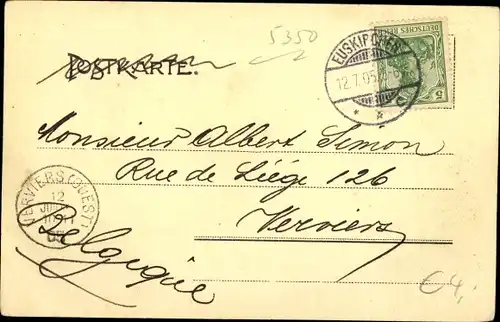 5350
POSTKARTE.
EUSKIRCHEN
12.7.05
DEUTSCHES REICH
5
Monsieur Albert Simon
Rue de Liége 126
Verviers
Belgique
VERVIERS (OUEST)
12
05
€4,